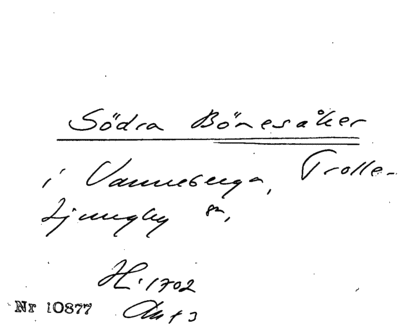 Södra Bönesåker
i Vanneberga, Trolle-
Ljungby sn,
H. 1702
Nr 10877